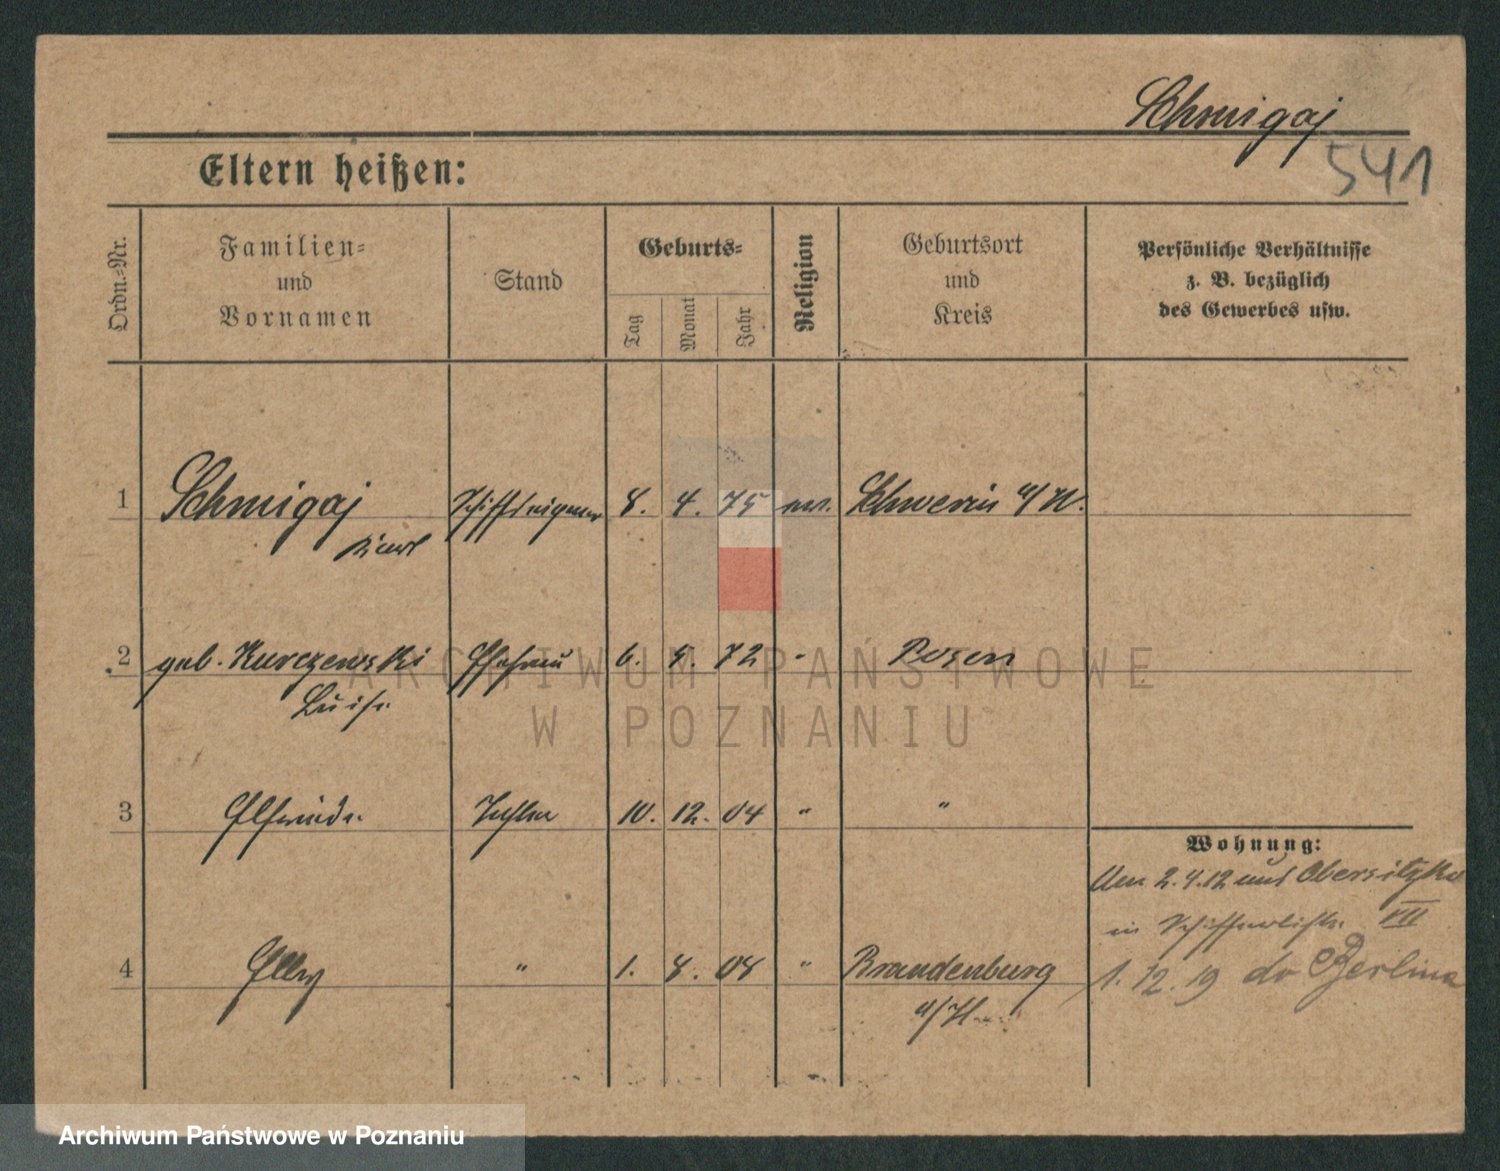 Schmigaj
541
Eltern heißen:
Ordn.-Nr.
Familien-
und
Vornamen
Stand
Geburts-
Tag
Monat
Jahr
Religion
Geburtsort
und
Kreis
Persönliche Verhältnisse
z. B. bezüglich
des Gewerbes usw.
1 Schmigaj Schiffseigner 8. 4. 75 ev. Schwerin a/W.
2 geb. Kurczewski Ehefrau 6. 9. 72 " Posen
Luise
3 Elfriede Tochter 10. 12. 04 " "
Wohnung:
Am 2.4.12 aus Obersitzko
in Schifferliste VII
4 Elly " 1. 8. 08 " Brandenburg
a/H.
1.12.19 do Berlina
ARCHIWUM PAŃSTWOWE
W POZNANIU
Archiwum Państwowe w Poznaniu